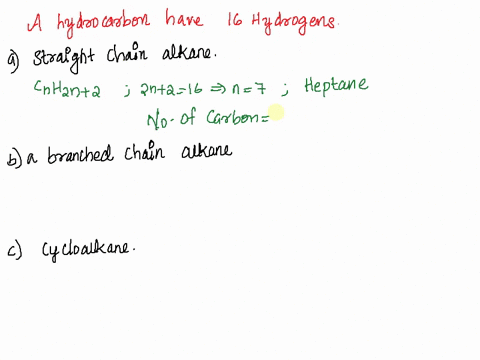 A hydrocarbon have 16 Hydrogens.
a) straight chain alkane.
CnH2n+2 ; 2n+2=16 ⇒ n=7 ; Heptane
No. of Carbon=
b) a branched chain alkane
c) cycloalkane.